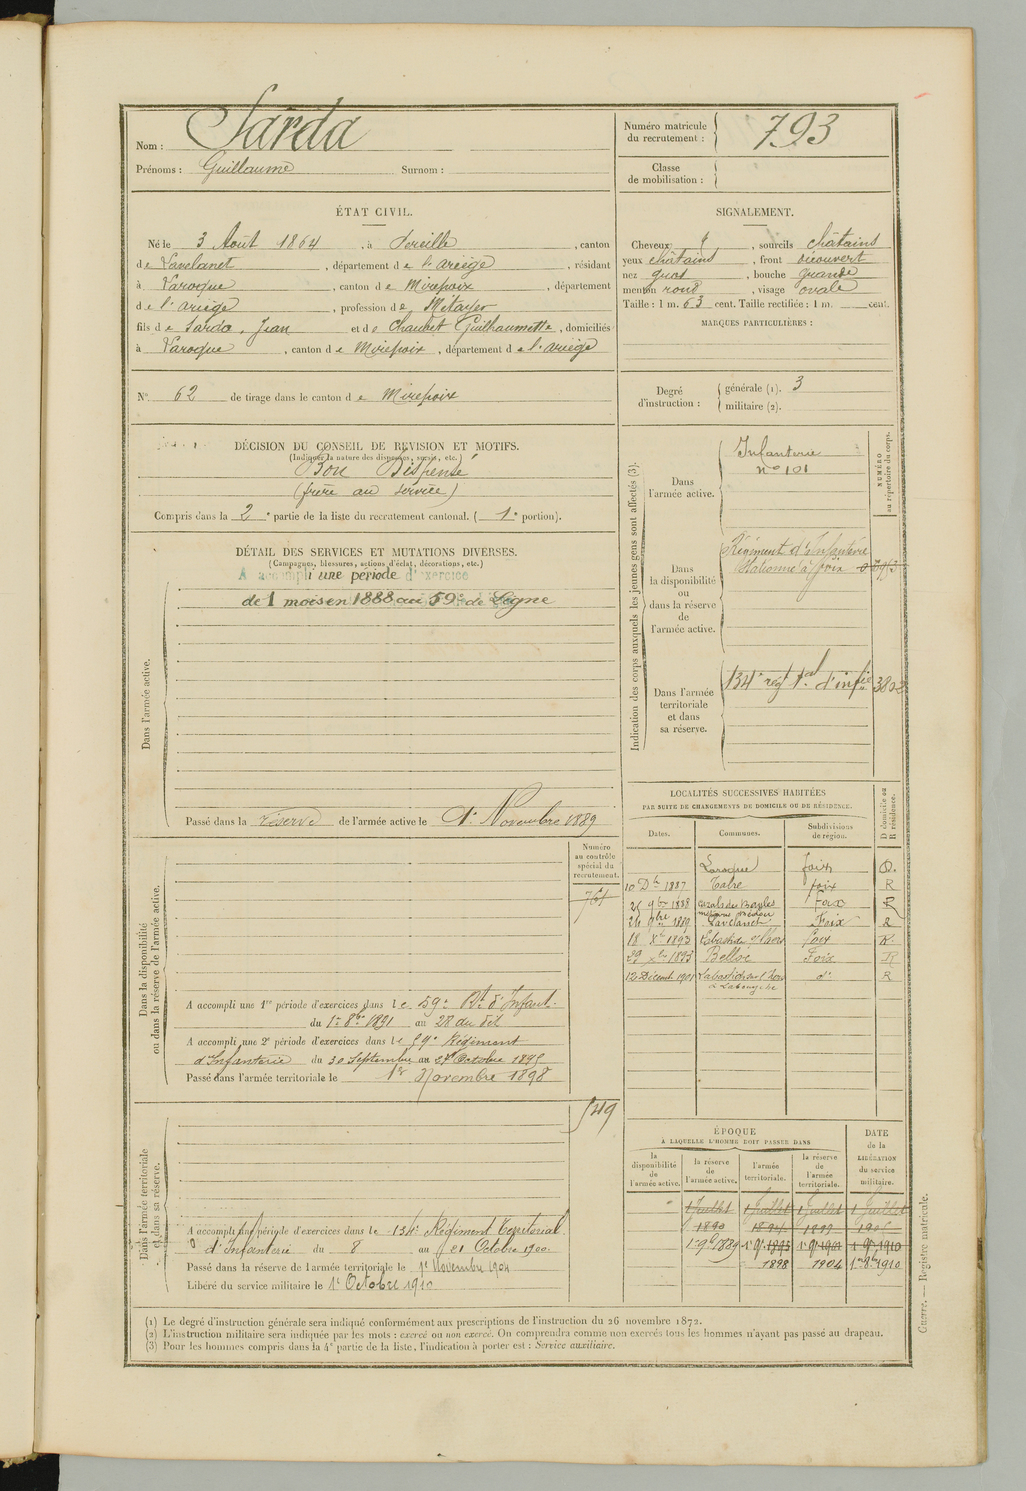 Nom : Sarda
Prénoms : Guillaume Surnom :
Numéro matricule du recrutement : 793
Classe de mobilisation :
ÉTAT CIVIL.
Né le 3 Août 1864, à Dreille, canton
de Lavelanet, département de l'ariège, résidant
à Laroque, canton de Mirepoix, département
de l'ariège, profession de Métayer
fils de Sarda, Jean et de Chaubet Guilhaumette, domiciliés
à Laroque, canton de Mirepoix, département de l'ariège
SIGNALEMENT.
Cheveux , sourcils châtains
yeux châtains, front découvert
nez gros, bouche grande
menton rond, visage ovale
Taille : 1 m. 63 cent. Taille rectifiée : 1 m. cent.
MARQUES PARTICULIÈRES :
N° 62 de tirage dans le canton de Mirepoix
Degré d'instruction : générale (1). 3
militaire (2).
DÉCISION DU CONSEIL DE REVISION ET MOTIFS.
(Indiquer la nature des dispenses, sursis, etc.)
Bon Dispensé
(frère au service)
Compris dans la 2e partie de la liste du recrutement cantonal. (1e portion).
DÉTAIL DES SERVICES ET MUTATIONS DIVERSES.
(Campagnes, blessures, actions d'éclat, décorations, etc.)
Dans l'armée active.
A accompli une période d'exercice
de 1 mois en 1888 au 59e de Ligne
Passé dans la réserve de l'armée active le 1er Novembre 1889
Indication des corps auxquels les jeunes gens sont affectés (3).
NUMÉRO au répertoire du corps.
Dans l'armée active.
Infanterie
n° 101
Dans la disponibilité ou dans la réserve de l'armée active.
Régiment d'Infanterie
stationné à Foix
Dans l'armée territoriale et dans sa réserve.
134e rég t al d'inf ie
LOCALITÉS SUCCESSIVES HABITÉES
PAR SUITE DE CHANGEMENTS DE DOMICILE OU DE RÉSIDENCE.
Dates. Communes. Subdivisions de région. D domicile ou R résidence.
Laroque Foix D.
10 Dbre 1887 Foix R
25 9bre 1888 Foix R
24 9bre 1889 Lavelanet Foix R
18 Xbre 1893 Labastide s/ l'hers Foix R.
29 Xbre 1893 Belloc Foix R
12 Décemb 1901 Labastide sur l'hers d° R
Dans la disponibilité ou dans la réserve de l'armée active.
Numéro au contrôle spécial du recrutement.
761
A accompli une 1re période d'exercices dans le 59e Rt d'Infant.
du 1er 8bre 1891 au 28 du dit
A accompli une 2e période d'exercices dans le 59e Régiment
d'Infanterie du 30 Septembre au 27 Octobre 1895
Passé dans l'armée territoriale le 1er Novembre 1898
549
Dans l'armée territoriale et dans sa réserve.
A accompli une période d'exercices dans le 134e Régiment Territorial
d'Infanterie du 8 au 21 Octobre 1900.
Passé dans la réserve de l'armée territoriale le 1er Novembre 1904
Libéré du service militaire le 1er Octobre 1910
ÉPOQUE
À LAQUELLE L'HOMME DOIT PASSER DANS
DATE de la LIBÉRATION du service militaire.
la disponibilité de l'armée active. la réserve de l'armée active. l'armée territoriale. la réserve de l'armée territoriale.
1 Juillet 1 Juillet 1 Juillet 1 Juillet
1890 1894 1899 1905
1er 9b 1889 1er 9b 1895 1er 9b 1901 1er 9b 1910
1898 1904 1er 8bre 1910
(1) Le degré d'instruction générale sera indiqué conformément aux prescriptions de l'instruction du 26 novembre 1872.
(2) L'instruction militaire sera indiquée par les mots : exercé ou non exercé. On comprendra comme non exercés tous les hommes n'ayant pas passé au drapeau.
(3) Pour les hommes compris dans la 4e partie de la liste, l'indication à porter est : Service auxiliaire.
Guerre. — Registre matricule.